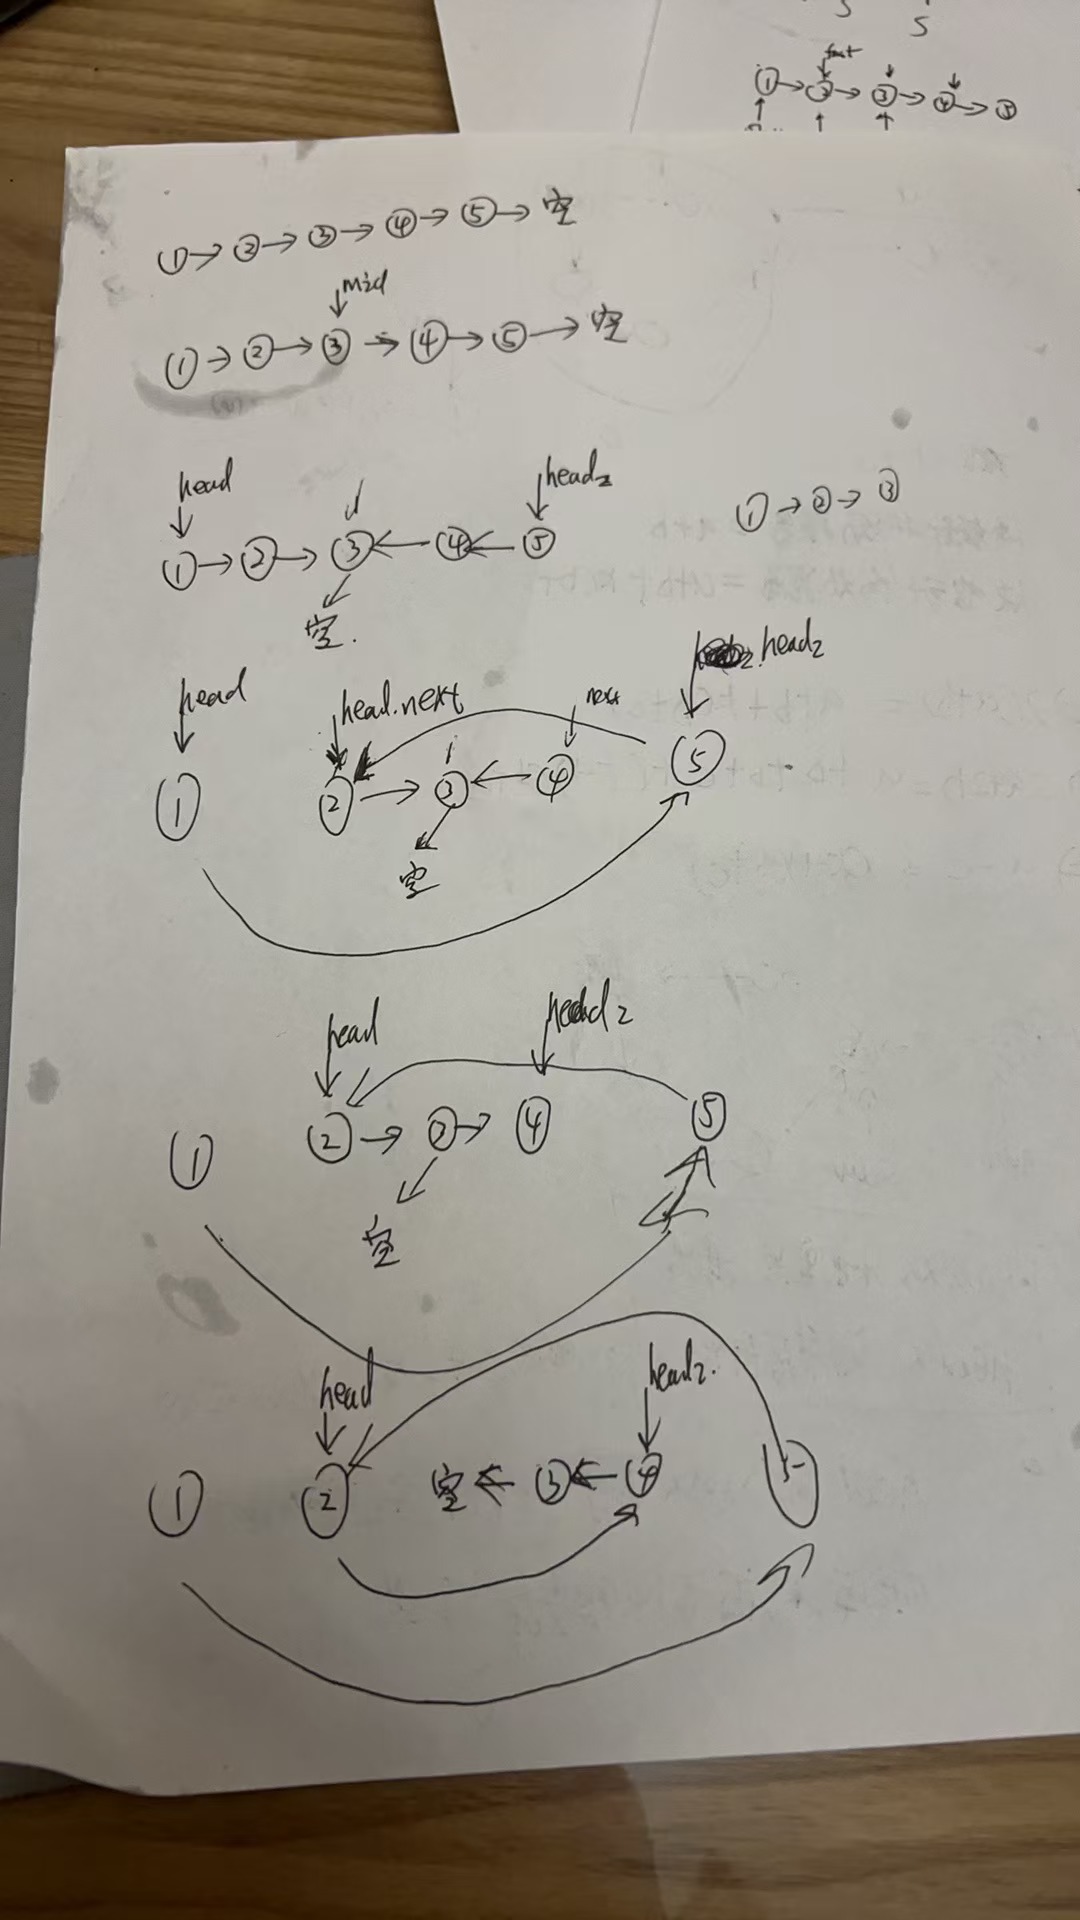 S
S
fast
①→②→③→④→⑤
①→②→③→④→⑤→空
mid
①→②→③→④→⑤→空
head
head2
①→②→③←④←⑤
①→②→③
空.
head2
head
head.next
next
① ②→③←④ ⑤
空
head
head2
① ②→③→④ ⑤
空
head
head2.
① ② 空←③←④ 5